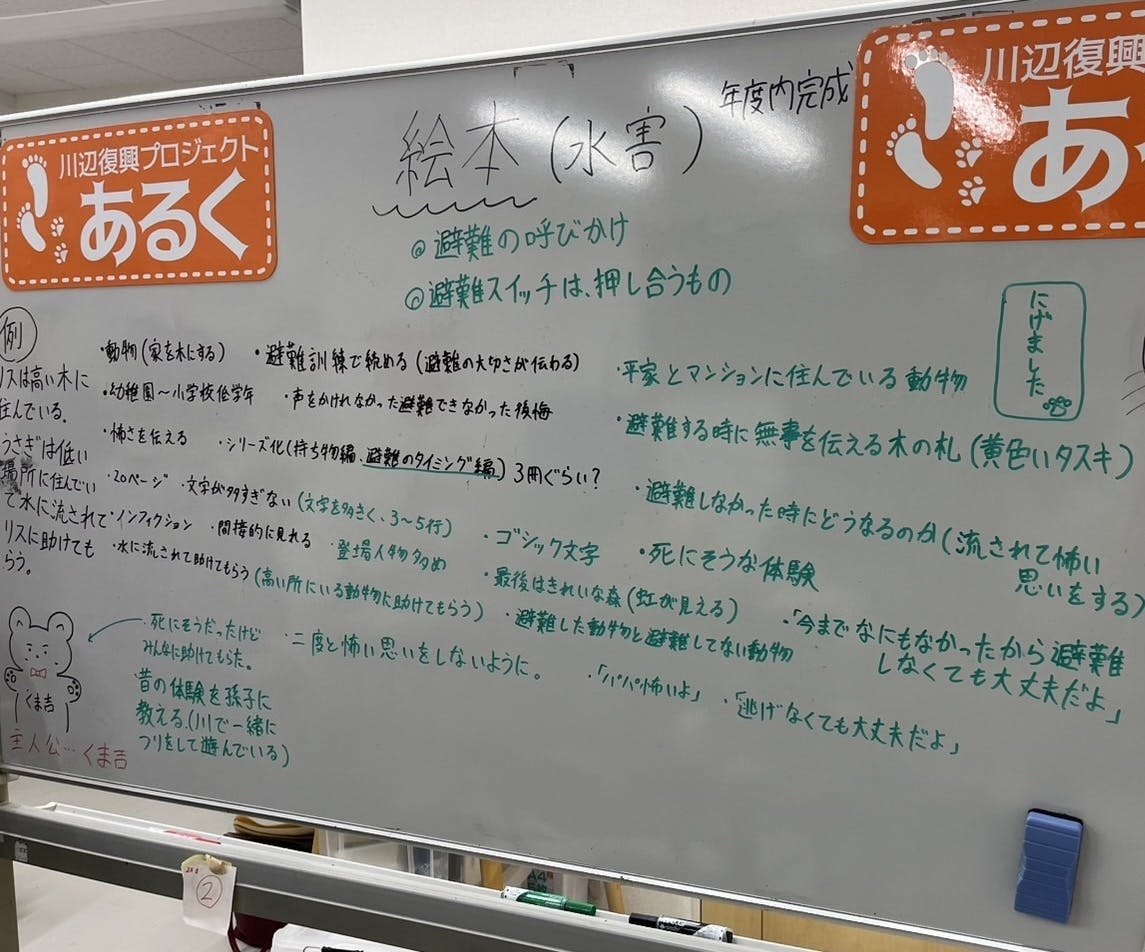 川辺復興プロジェクト
あるく
絵本(水害)
年度内完成
川辺復興
あ
◎避難の呼びかけ
◎避難スイッチは、押し合うもの
にげました
例
リスは高い木に
住んでいる。
うさぎは低い
場所に住んでい
て水に流されて
リスに助けても
らう。
・動物(家を木にする)
・避難訓練で統める(避難の大切さが伝わる)
・幼稚園〜小学校低学年
・声をかけれなかった避難できなかった後悔
・怖さを伝える
・シリーズ化(持ち物編、避難のタイミング編)3冊ぐらい?
・20ページ
・文字が多すぎない(文字を多きく、3〜5行)
・インフィクション
・間接的に見れる
・登場人物多め
・水に流されて助けてもらう(高い所にいる動物に助けてもらう)
・平家とマンションに住んでいる動物
・避難する時に無事を伝える木の札(黄色いタスキ)
・避難しなかった時にどうなるのか(流されて怖い
思いをする)
・ゴシック文字
・死にそうな体験
・最後はきれいな森(虹が見える)
・避難した動物と避難してない動物
・「今までなにもなかったから避難
しなくても大丈夫だよ」
・二度と怖い思いをしないように。
・「パパ怖いよ」
・「逃げなくても大丈夫だよ」
・死にそうだったけど
みんなに助けてもらた。
・昔の体験を孫子に
教える。(川で一緒に
つりをして遊んでいる)
くま吉
主人公…くま吉
②
A4